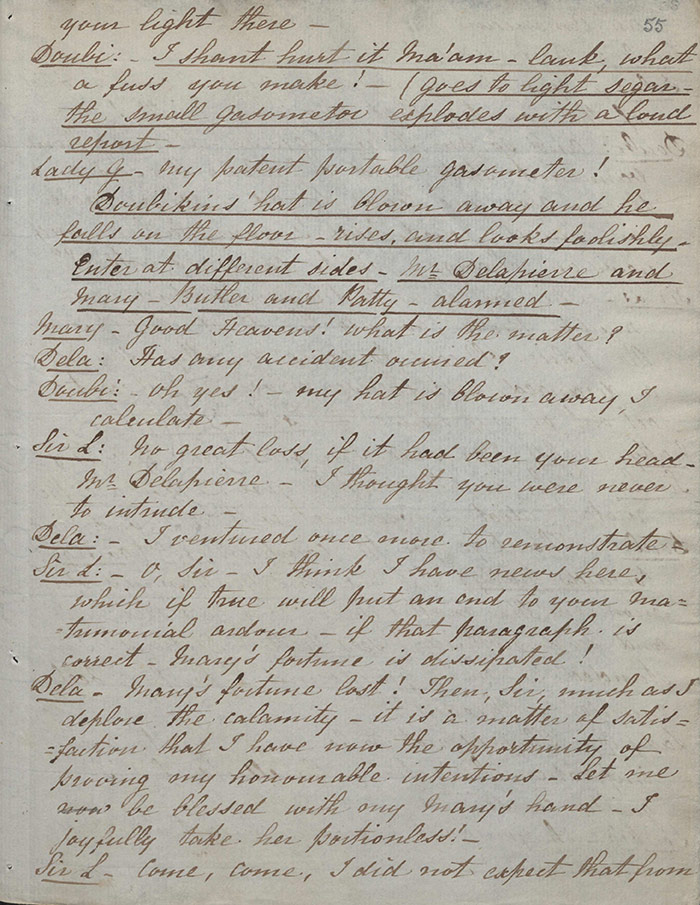 55
your light there –
Doubi: – I shant hurt it Ma'am – lauk, what
a fuss you make! – (goes to light segar –
the small gasometor explodes with a loud
report –
Lady G – my patent portable gasometer!
Doubikins' hat is blown away and he
falls on the floor – rises, and looks foolishly –
Enter at different sides – Mr Delapierre and
Mary – Butler and Patty – alarmed –
Mary – Good Heavens! what is the matter?
Dela: Has any accident occurred?
Doubi: – oh yes! – my hat is blown away, I
calculate –
Sir L: No great loss, if it had been your head –
Mr Delapierre – I thought you were never
to intrude –
Dela: – I ventured once more to remonstrate =
Sir L: – O, Sir – I think I have news here,
which if true will put an end to your ma=
=trimonial ardour – if that paragraph is
correct – Mary's fortune is dissipated!
Dela – Mary's fortune lost! Then, Sir, much as I
deplore the calamity – it is a matter of satis=
=faction that I have now the opportunity of
proving my honourable intentions – Let me
now be blessed with my Mary's hand – I
joyfully take her portionless! –
Sir L – Come, come, I did not expect that from